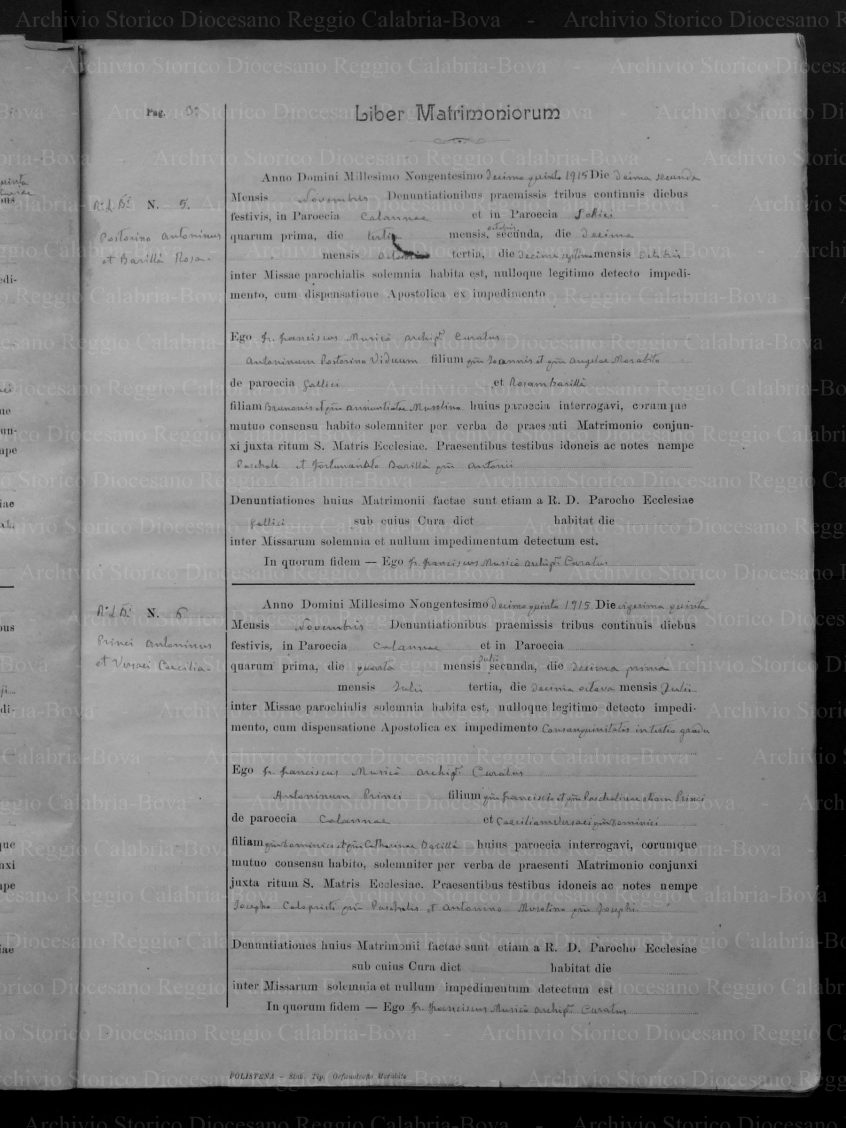 Archivio Storico Diocesano Reggio Calabria-Bova
Pag.
Liber Matrimoniorum
N. 5.
Postorino Antoninus
et Barillà Rosa
Anno Domini Millesimo Nongentesimo decimo quinto 1915 Die decima secunda
Mensis Novembris Denuntiationibus praemissis tribus continuis diebus
festivis, in Paroecia Calannae et in Paroecia Gallici
quarum prima, die tertia mensis, octobris secunda, die decima
mensis octobris tertia, die decima septima mensis Octobris
inter Missae parochialis solemnia habita est, nulloque legitimo detecto impedi-
mento, cum dispensatione Apostolica ex impedimento
Ego fr. franciscus Musicò archipt. Curatus
Antoninum Postorino Viduum filium qm Joannis et qm Angelae Morabito
de paroecia Gallici et Rosam Barillà
filiam Brunonis et qm Annuntiatae Musolino huius paroecia interrogavi, eorum que
mutuo consensu habito solemniter per verba de praesenti Matrimonio conjun-
xi juxta ritum S. Matris Ecclesiae. Praesentibus testibus idoneis ac notes nempe
Paschale et Fortunantelo Barillà qm Antonii
Denuntiationes huius Matrimonii factae sunt etiam a R. D. Parocho Ecclesiae
Gallici sub cuius Cura dict habitat die
inter Missarum solemnia et nullum impedimentum detectum est.
In quorum fidem — Ego fr. franciscus Musicò archipt. Curatus
N. 6
Princi Antoninus
et Versaci Caecilia
Anno Domini Millesimo Nongentesimo decimo quinto 1915 Die vigesima quinta
Mensis Novembris Denuntiationibus praemissis tribus continuis diebus
festivis, in Paroecia Calannae et in Paroecia
quarum prima, die quarta mensis Julii secunda, die decima prima
mensis Julii tertia, die decima octava mensis Julii
inter Missae parochialis solemnia habita est, nulloque legitimo detecto impedi-
mento, cum dispensatione Apostolica ex impedimento Consanguinitatis in tertio gradu
Ego fr. franciscus Musicò archipt. Curatus
Antoninum Princi filium qm Francisci et qm Paschalinae etiam Princi
de paroecia Calannae et Caeciliam Versaci qm Dominici
filiam qm Dominici et qm Catharinae Barillà huius paroecia interrogavi, eorumque
mutuo consensu habito, solemniter per verba de praesenti Matrimonio conjunxi
juxta ritum S. Matris Ecclesiae. Praesentibus testibus idoneis ac notes nempe
Josepho Calopristi qm Paschalis et Antonino Musolino qm Josephi
Denuntiationes huius Matrimonii factae sunt etiam a R. D. Parocho Ecclesiae
sub cuius Cura dict habitat die
inter Missarum solemnia et nullum impedimentum detectum est
In quorum fidem — Ego fr. franciscus Musicò archipt. Curatus
POLISTENA - Stab. Tip. Orfanotrofio Morabito